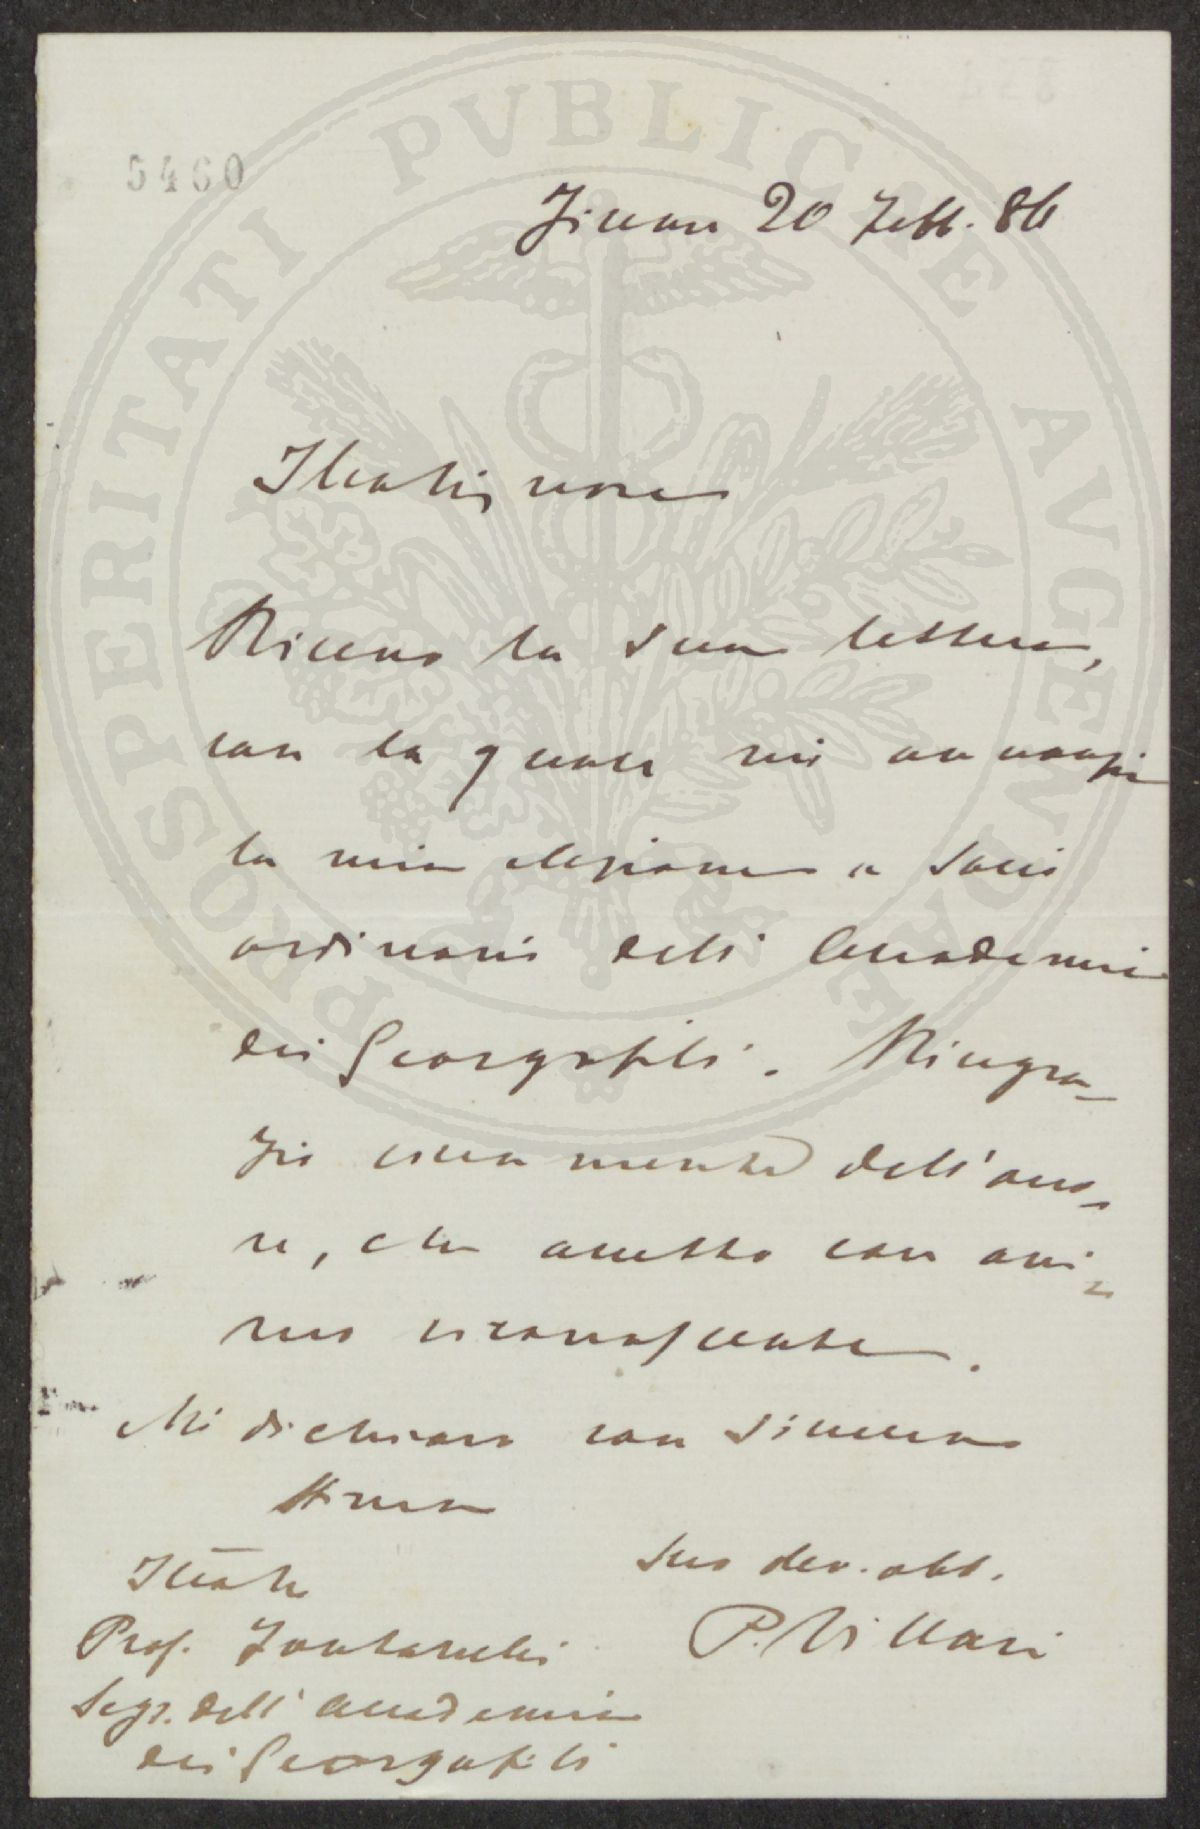 5460
Firenze 20 Febb. 86
PROSPERITATI PVBLICAE AVGENDAE
Illustre Signore
Ricevo la sua lettera,
con la quale mi annunzia
la mia elezione a Socio
ordinario dell'Accademia
dei Georgofili. Ringra-
zio vivamente dell'ono-
re, che accetto con ani-
mo riconoscente.
Mi dichiaro con sincera
stima
Suo dev. obb.
P. Villari
Prof.
Segr. dell'Accademia
dei Georgofili